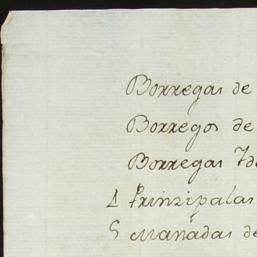 Borregas de
Borregos de
Borregas Yd
1 Prinzipalas
5 Manadas de